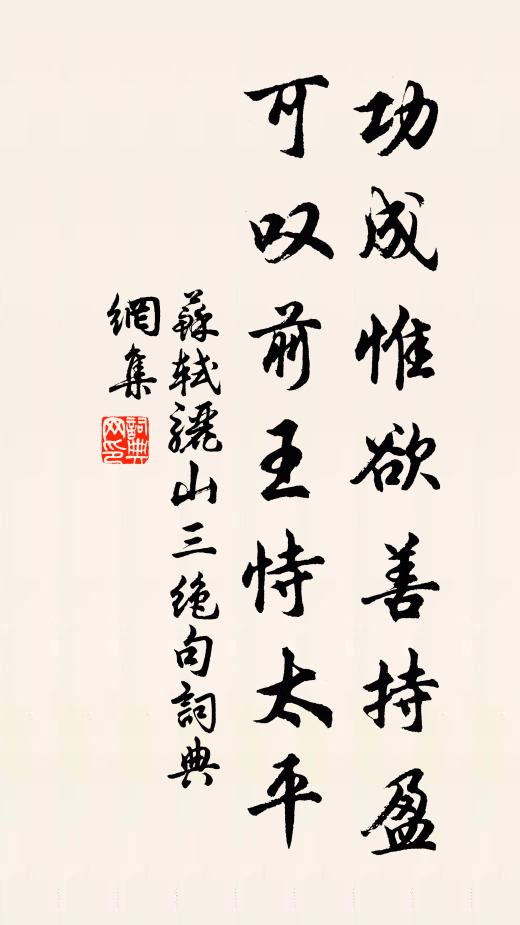 功成惟欲善持盈
可叹前王恃太平
蘇軾驪山三绝句詞典
網集
詞典
网印